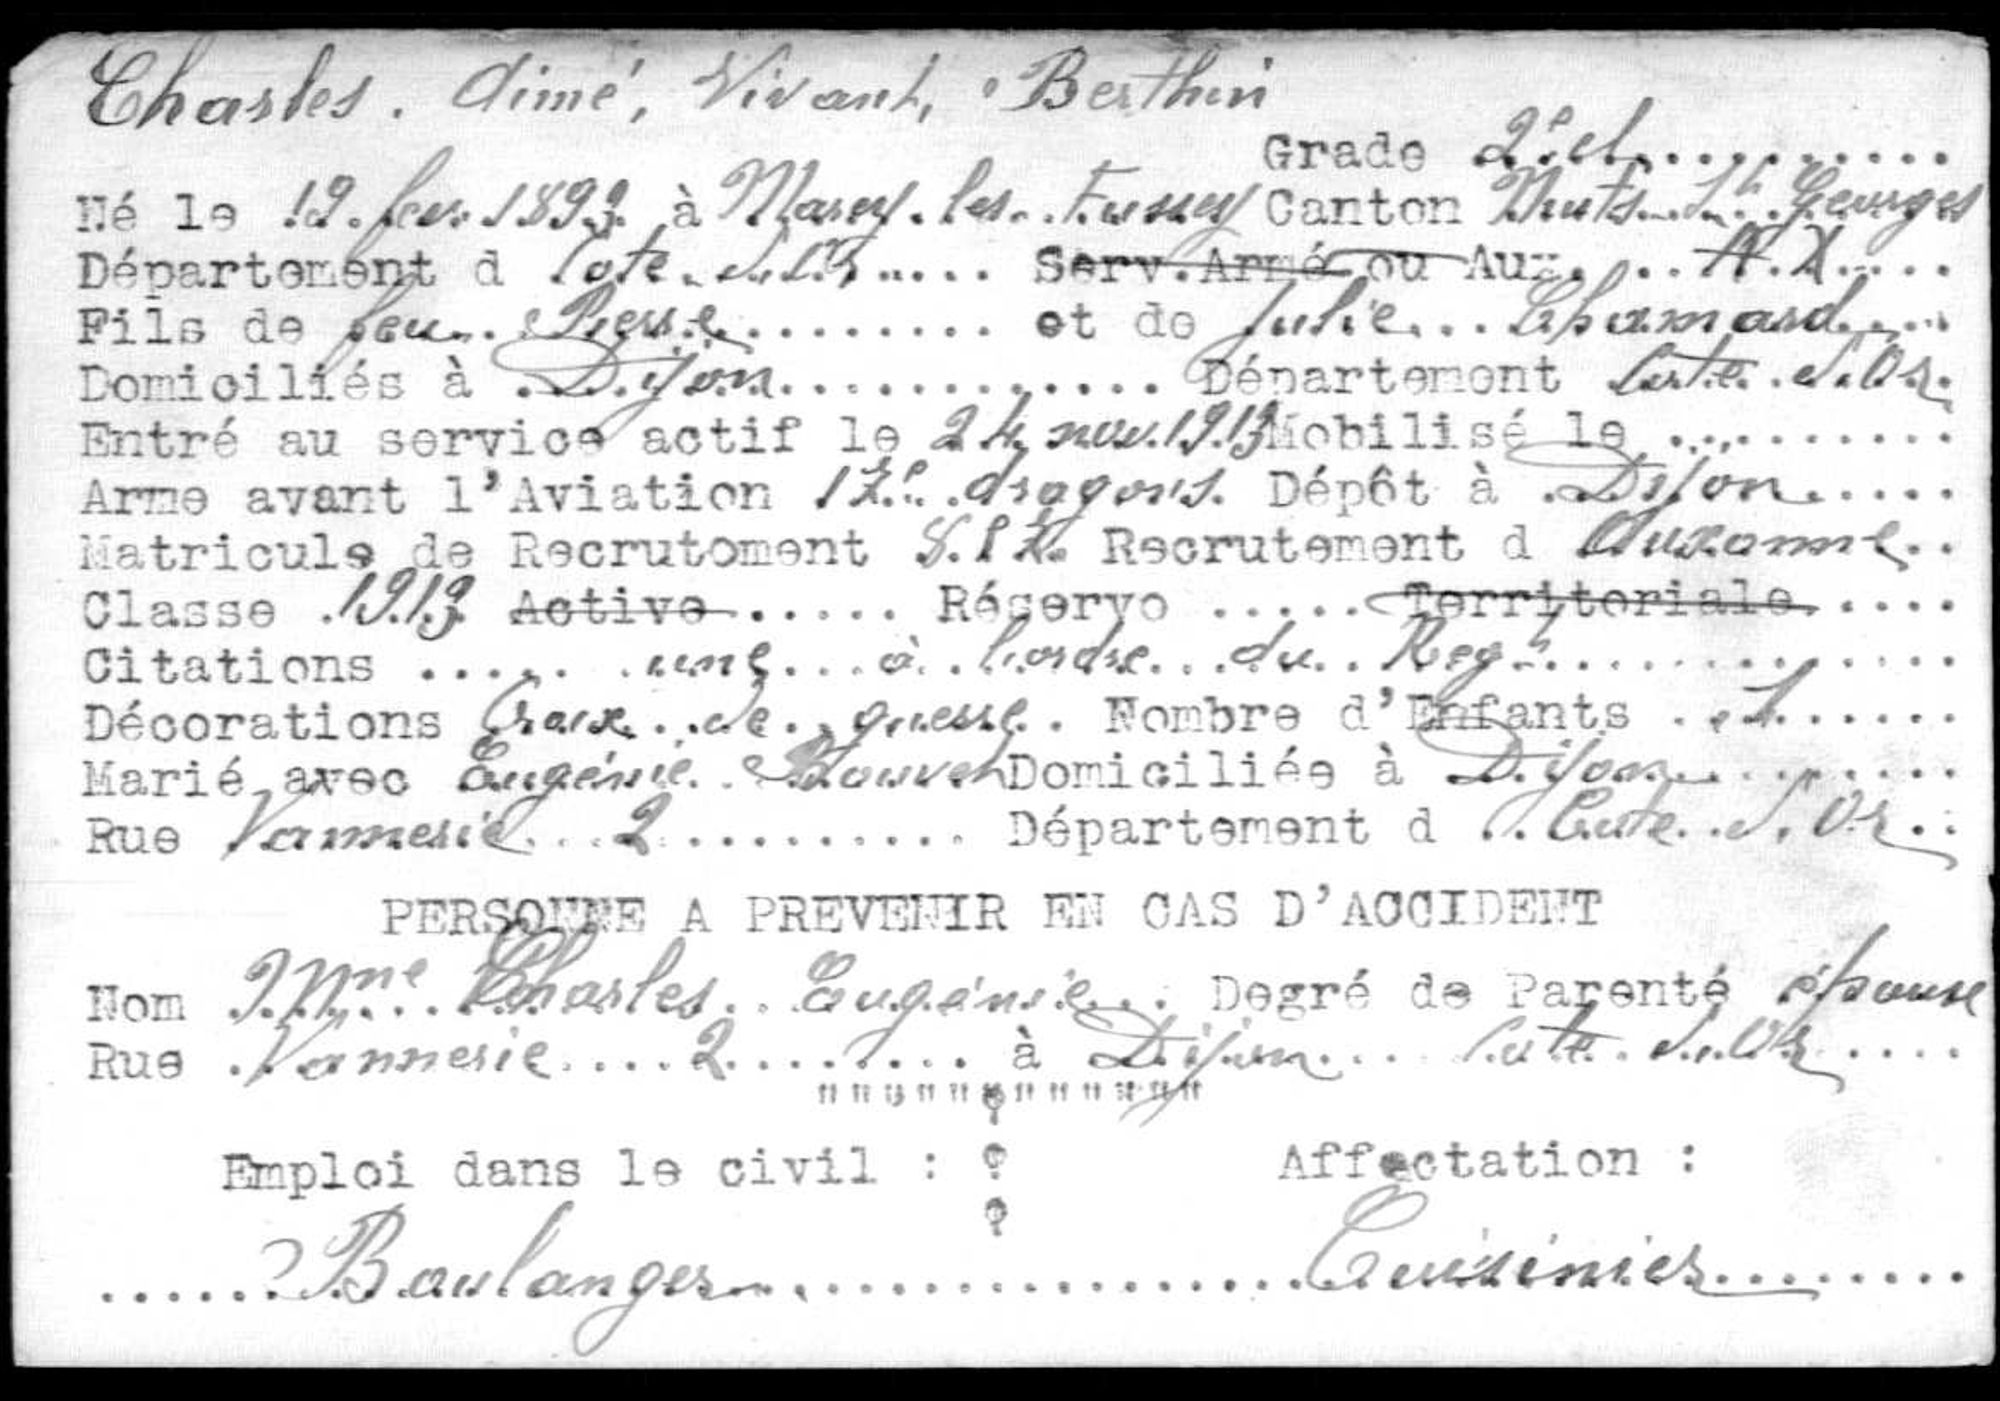 Charles. Aimé, Vivant, Berthin
Grade 2e cl..........
Né le 19. fev. 1893 à Marey. les. Fussey Canton Nuits. St. Georges
Département d Cote. d.Or..... Serv. Armé ou Aux. ..A.X....
Fils de feu.. Pierre.......... et de Julie... Chamard....
Domiciliés à .Dijon............. Département Cote. d.Or.
Entré au service actif le 24 nov. 1913 Mobilisé le ..........
Arme avant l'Aviation 17e. dragons. Dépôt à .Dijon.....
Matricule de Recrutement 817. Recrutement d Auxonne..
Classe .1913 Active ..... Réserve ..... Territoriale.....
Citations ..... une... à. l'ordre. du. Regt..............
Décorations Croix. de. guerre. Nombre d'Enfants ..1......
Marié avec Eugénie. Domiciliée à Dijon..........
Rue Vannerie... 2.......... Département d ..Cote. d.Or..
PERSONNE A PREVENIR EN CAS D'ACCIDENT
Nom Mme.. Charles.. Eugénie... Degré de Parenté épouse
Rue .Vannerie.... 2........ à Dijon... Cote. d.Or....
""""""""""""
Emploi dans le civil : Affectation :
......Boulanger.................Cuisinier........